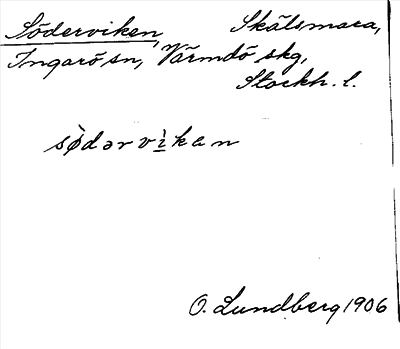 Söderviken, Skälsmara,
Ingarö sn, Värmdö skg,
Stockh. l.
sø̀dərvì̲kan
O. Lundberg 1906